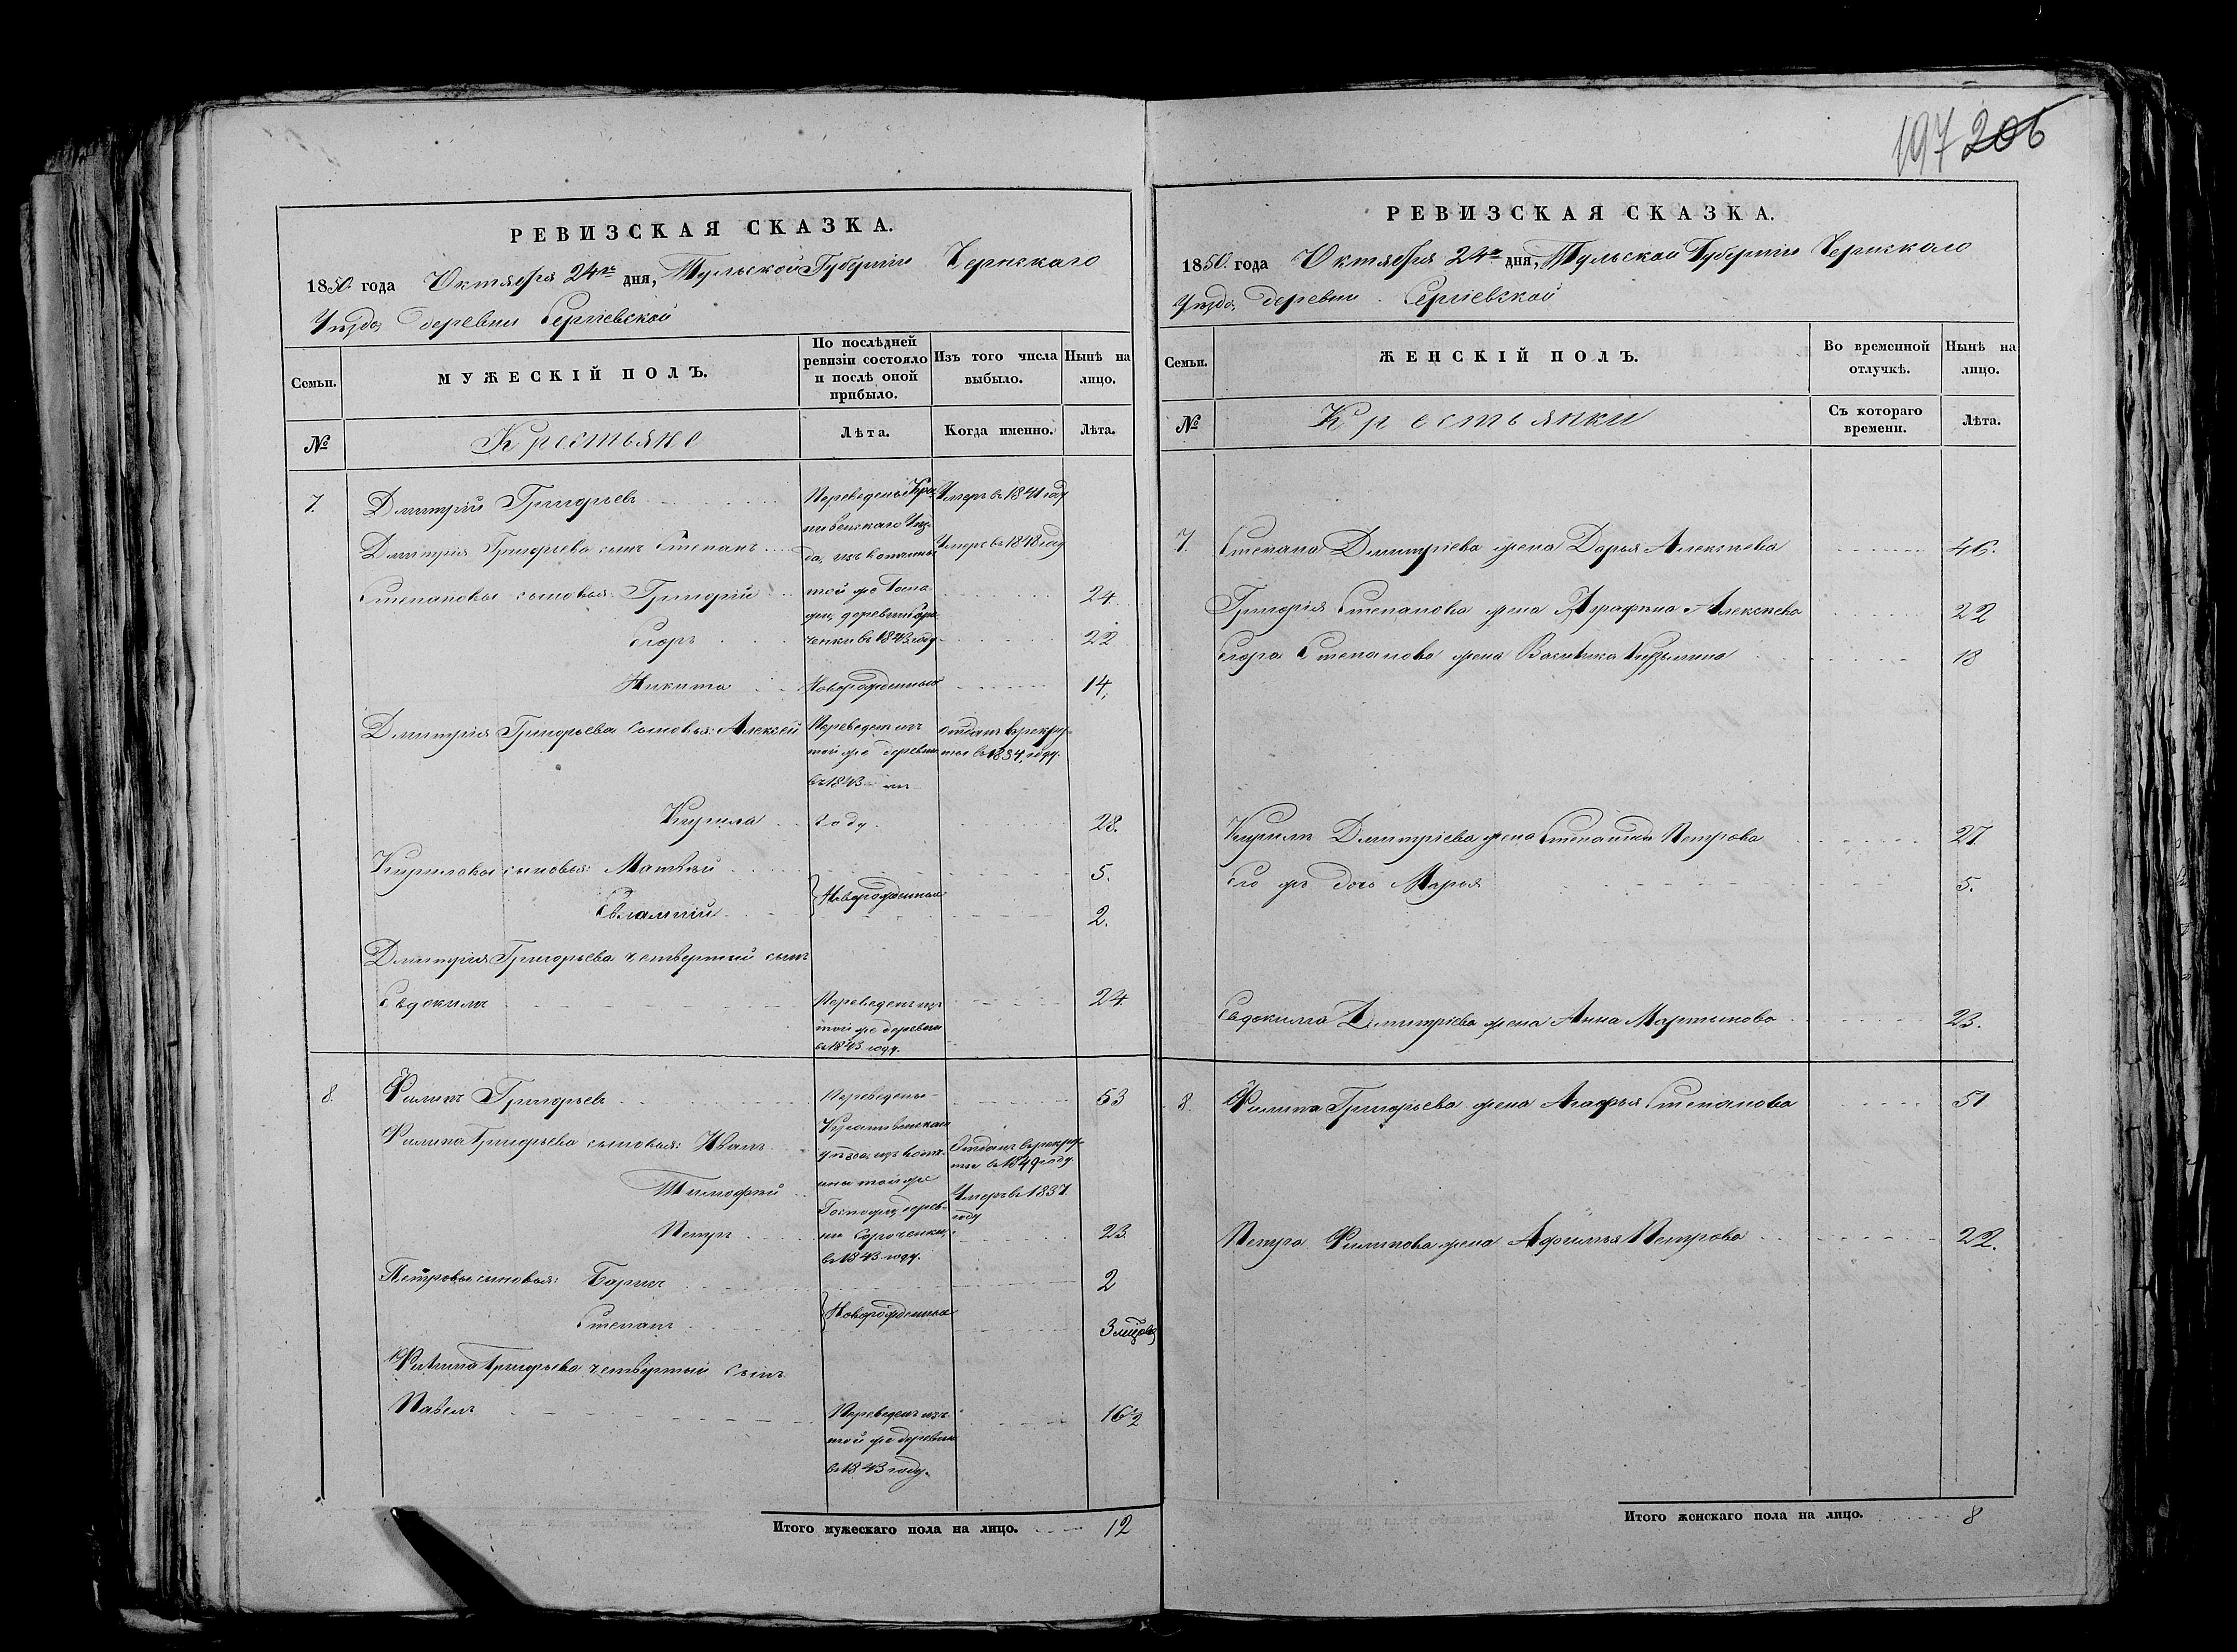 197 206
РЕВИЗСКАЯ СКАЗКА.
1850 года Октября 24го дня, Тульской Губернiи Чернскаго
Уѣзда, деревни Сергiевской
Семьи.
МУЖЕСКIЙ ПОЛЪ.
По послѣдней ревизiи состояло и послѣ оной прибыло.
Изъ того числа выбыло.
Нынѣ на лицо.
№
Крестьяне
Лѣта.
Когда именно.
Лѣта.
7. Дмитрiй Григорьевъ Переведены Кра- Умеръ въ 1841 году
пивенскаго Уѣз-
Дмитрiя Григорьева сынъ Степанъ да, изъ вотчины Умеръ въ 1848 году
Степановы сыновья: Григорiй той же Госпо- 24.
жи, деревни
Егоръ въ 1843 году 22
Никита Новорожденный 14,
Дмитрiя Григорьева сыновья: Алексей Переведенъ изъ отданъ въ рекру-
той же деревни ты въ 1834, году.
въ 1843 мъ
Кирила году. 28.
Кириловы сыновья: Матвѣй 5.
Новорожденные
Евлампiй 2.
Дмитрiя Григорьева четвертый сынъ
Евдокимъ Переведенъ изъ 24.
той же деревни
въ 1843 году.
8. Филипъ Григорьевъ Переведены 53
Крапивенскаго
Филипа Григорьева сыновья: Иванъ уѣзда, изъ вотч- Отданъ въ рекру-
ины той же ты въ 1849 году.
Тимофѣй Госпожи, дерев- Умеръ въ 1837.
году
Петръ ни Сороченки, 23.
въ 1843 году.
Петровы сыновья: Борисъ 2
Новорожденные
Степанъ 3 месяцовъ
Филипа Григорьева четвертый сынъ
Павелъ Переведенъ изъ 16½
той же деревни
въ 1843 году.
Итого мужескаго пола на лицо. 12
РЕВИЗСКАЯ СКАЗКА.
1850. года Октября 24го дня, Тульской Губернiи Чернскаго
Уѣзда, деревни Сергiевской
Семьи.
ЖЕНСКIЙ ПОЛЪ.
Во временной отлучкѣ.
Нынѣ на лицо.
№
Крестьянки
Съ котораго времени.
Лѣта.
7. Степана Дмитрiева жена Дарья Алексѣева 46.
Григорiя Степанова жена Аграфѣна Алексѣева 22
Егора Степанова жена Василиса Кузьмина 18
Кирилы Дмитрiева жена Степанида Петрова 27
Его жъ дочь Марья 5.
Евдокима Дмитрiева жена Анна Мартынова 23.
8. Филипа Григорьева жена Агафья Степанова 51
Петра Филипова жена Афимья Петрова 22.
Итого женскаго пола на лицо. 8